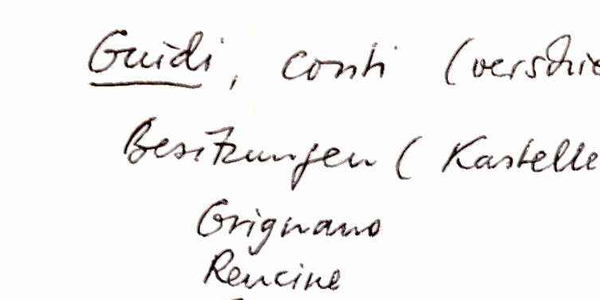 Guidi, conti (verschie
Besitzungen (Kastelle
Grignano
Rencine